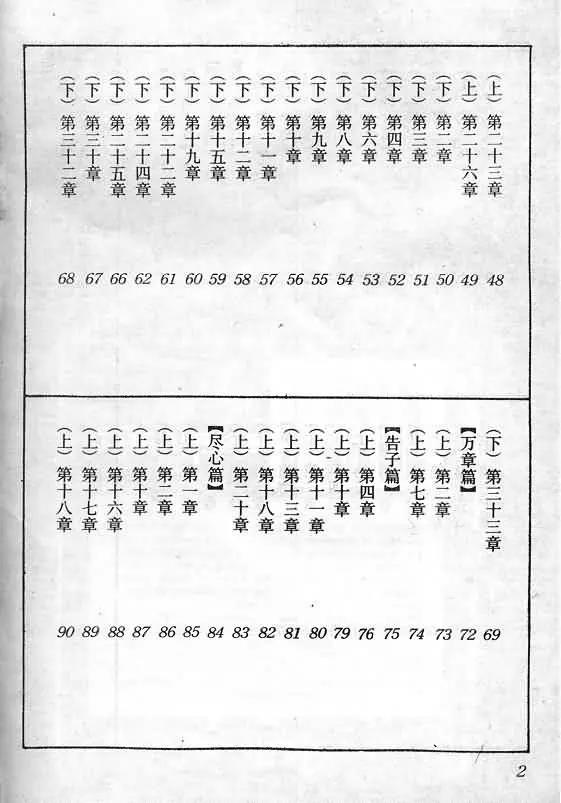 （上）第二十三章 48
（上）第二十六章 49
（下）第二章 50
（下）第三章 51
（下）第四章 52
（下）第六章 53
（下）第八章 54
（下）第九章 55
（下）第十章 56
（下）第十一章 57
（下）第十二章 58
（下）第十五章 59
（下）第十九章 60
（下）第二十二章 61
（下）第二十四章 62
（下）第二十五章 66
（下）第三十章 67
（下）第三十二章 68
（下）第三十三章 69
【万章篇】 72
（上）第二章 73
（上）第七章 74
【告子篇】 75
（上）第四章 76
（上）第十章 79
（上）第十一章 80
（上）第十三章 81
（上）第十八章 82
（上）第二十章 83
【尽心篇】 84
（上）第一章 85
（上）第二章 86
（上）第十章 87
（上）第十六章 88
（上）第十七章 89
（上）第十八章 90
2